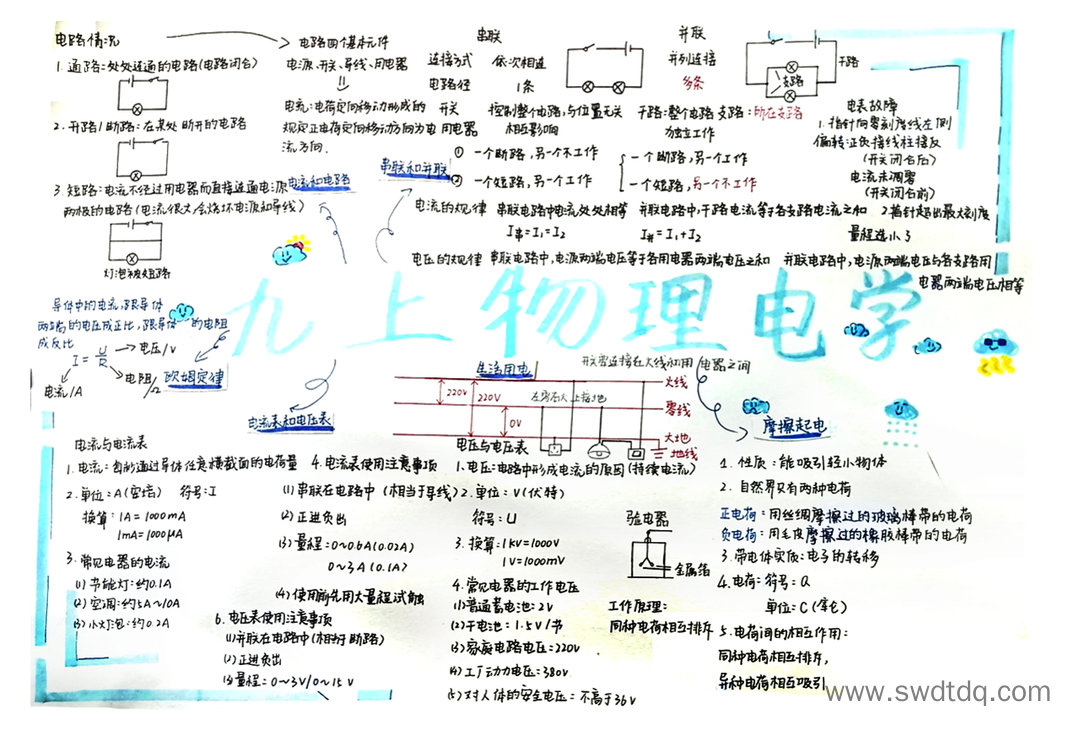 电路情况
1. 通路:处处连通的电路(电路闭合)
2. 开路/断路:在某处断开的电路
3. 短路:电流不经过用电器而直接连通电源
两极的电路(电流很大,会烧坏电源和导线)
灯泡被短路
电路四个基本元件
电源、开关、导线、用电器
电流:电荷定向移动形成的
规定正电荷定向移动方向为电
流方向.
电流和电路
串联和并联
串联
并联
连接方式 依次相连 并列连接
电路径 1条 多条
干路
支路
开关 控制整个电路,与位置无关 干路:整个电路 支路:所在支路
用电器 相互影响 独立工作
① 一个断路,另一个不工作
② 一个短路,另一个工作
一个断路,另一个工作
一个短路,另一个不工作
电流的规律 串联电路中电流处处相等 并联电路中,干路电流等于各支路电流之和
I串=I1=I2 I并=I1+I2
电压的规律 串联电路中,电源两端电压等于各用电器两端电压之和 并联电路中,电源两端电压与各支路用
电器两端电压相等
电表故障
1. 指针向零刻度线左侧
偏转:正负接线柱接反
(开关闭合后)
电流未调零
(开关闭合前)
2. 指针超出最大刻度
量程选小了
九上物理电学
导体中的电流,跟导体
两端的电压成正比,跟导体 的电阻
成反比
I=U/R
电压/V
电阻/Ω
电流/A
欧姆定律
生活用电
火线
零线
大地
地线
220V
220V
0V
左零右火上接地
电流表和电压表
摩擦起电
电流与电流表
1. 电流:每秒通过导体任意横截面的电荷量
2. 单位:A(安培) 符号:I
换算:1A=1000mA
1mA=1000μA
3. 常见电器的电流
(1) 节能灯:约0.1A
(2) 空调:约5A~10A
(3) 小灯泡:约0.2A
4. 电流表使用注意事项
(1) 串联在电路中(相当于导线)
(2) 正进负出
(3) 量程:0~0.6A(0.02A)
0~3A(0.1A)
(4) 使用前先用大量程试触
6. 电压表使用注意事项
(1) 并联在电路中(相当于断路)
(2) 正进负出
(3) 量程:0~3V/0~15V
电压与电压表
1. 电压:电路中形成电流的原因(持续电流)
2. 单位:V(伏特)
符号:U
3. 换算:1kV=1000V
1V=1000mV
4. 常见电器的工作电压
(1) 普通蓄电池:2V
(2) 干电池:1.5V/节
(3) 家庭电路电压=220V
(4) 工厂动力电压=380V
(5) 对人体的安全电压=不高于36V
验电器
金属箔
工作原理:
同种电荷相互排斥
1. 性质:能吸引轻小物体
2. 自然界只有两种电荷
正电荷:用丝绸摩擦过的玻璃棒带的电荷
负电荷:用毛皮摩擦过的橡胶棒带的电荷
3. 带电体实质:电子的转移
4. 电荷:符号:Q
单位:C(库仑)
5. 电荷间的相互作用:
同种电荷相互排斥,
异种电荷相互吸引
www.swdtdq.com